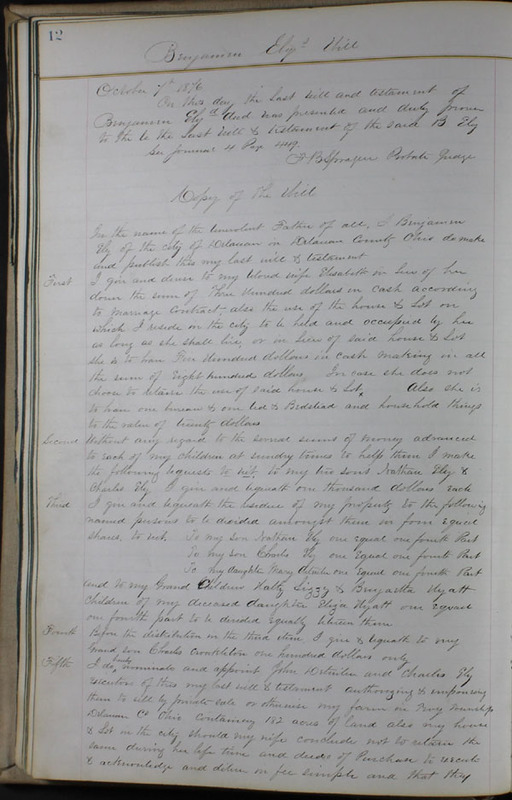 12
Benjamin Ely's Will
October 7th 1876
On this day the last will and testament of
Benjamin Ely decd was presented and duly proven
to be the last will & testament of the said B Ely
See Journal 4 Page 449.
F B Sprague Probate Judge
Copy of the Will
In the name of the benevolent Father of all, I Benjamin
Ely of the City of Delawan in Delawan County Ohio do make
and publish this my last will & testament
First I giv and devise to my belovd wife Elisabeth in lieu of her
dower the sum of Three Hundred dollars in cash according
to marriage contract, also the use of the house & Lot on
which I reside in the city to be held and occupied by her
as long as she shall live, or in lieu of said house & Lot
she is to have Five Hundred dollars in cash making in all
the sum of Eight hundred dollars In case she does not
choose to retain the use of said house & Lot. Also she is
to have one bureau & one bed & Bedstead and household things
to the value of twenty dollars
Second Without any regard to the several sums of money advanced
to each of my children at sundry times to help them I make
the following bequests to wit, to my two sons Nathan Ely &
Charles Ely I giv and bequeath one thousand dollars each
Third I giv and bequeath the residue of my property to the following
named persons to be divided amongst them in four equal
shares, to wit, To my son Nathan Ely one equal one fourth Part
To my son Charls Ely one Equal one fourth Part
To my daughter Mary one Equal one fourth Part
and to my Grand Children Lizzy & Wyatt
Children of my deceased daughter Eliza Wyatt one equal
one fourth part to be divided Equally between them
Fourth Before the distribution in the third item I giv & bequeath to my
Grand son Charles one hundred dollars only
Fifth I do nominate and appoint John and Charles Ely
executors of this my last will & testament authorizing & empowering
them to sell by private sale or otherwise my farm in Troy Township
Delawan Co Ohio Containing 182 acres of land also my house
& Lot in the city should my wife conclude not to retain the
same during her life time and deeds of Purchase to execute
& acknowledge and deliver in fee simple and that they